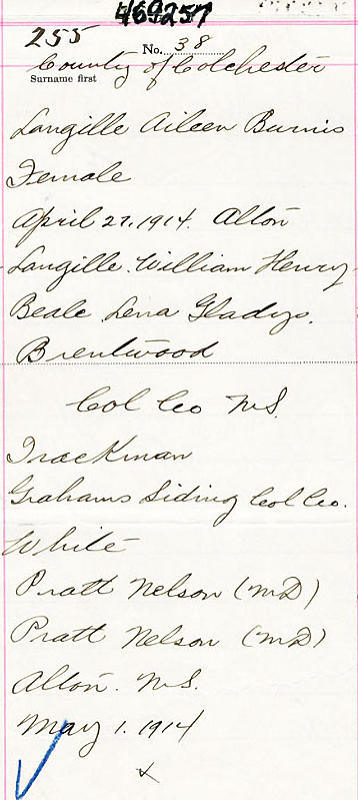 469257
255
No. 38
County of Colchester
Surname first
Langille Aileen Burnis
Female
April 27. 1914. Alton
Langille. William Henry
Beale Lena Gladys.
Brentwood
Col Co N.S.
Trackman
Grahams Siding Col Co.
White
Pratt Nelson (MD)
Pratt Nelson (MD)
Alton. N.S.
May 1. 1914
x